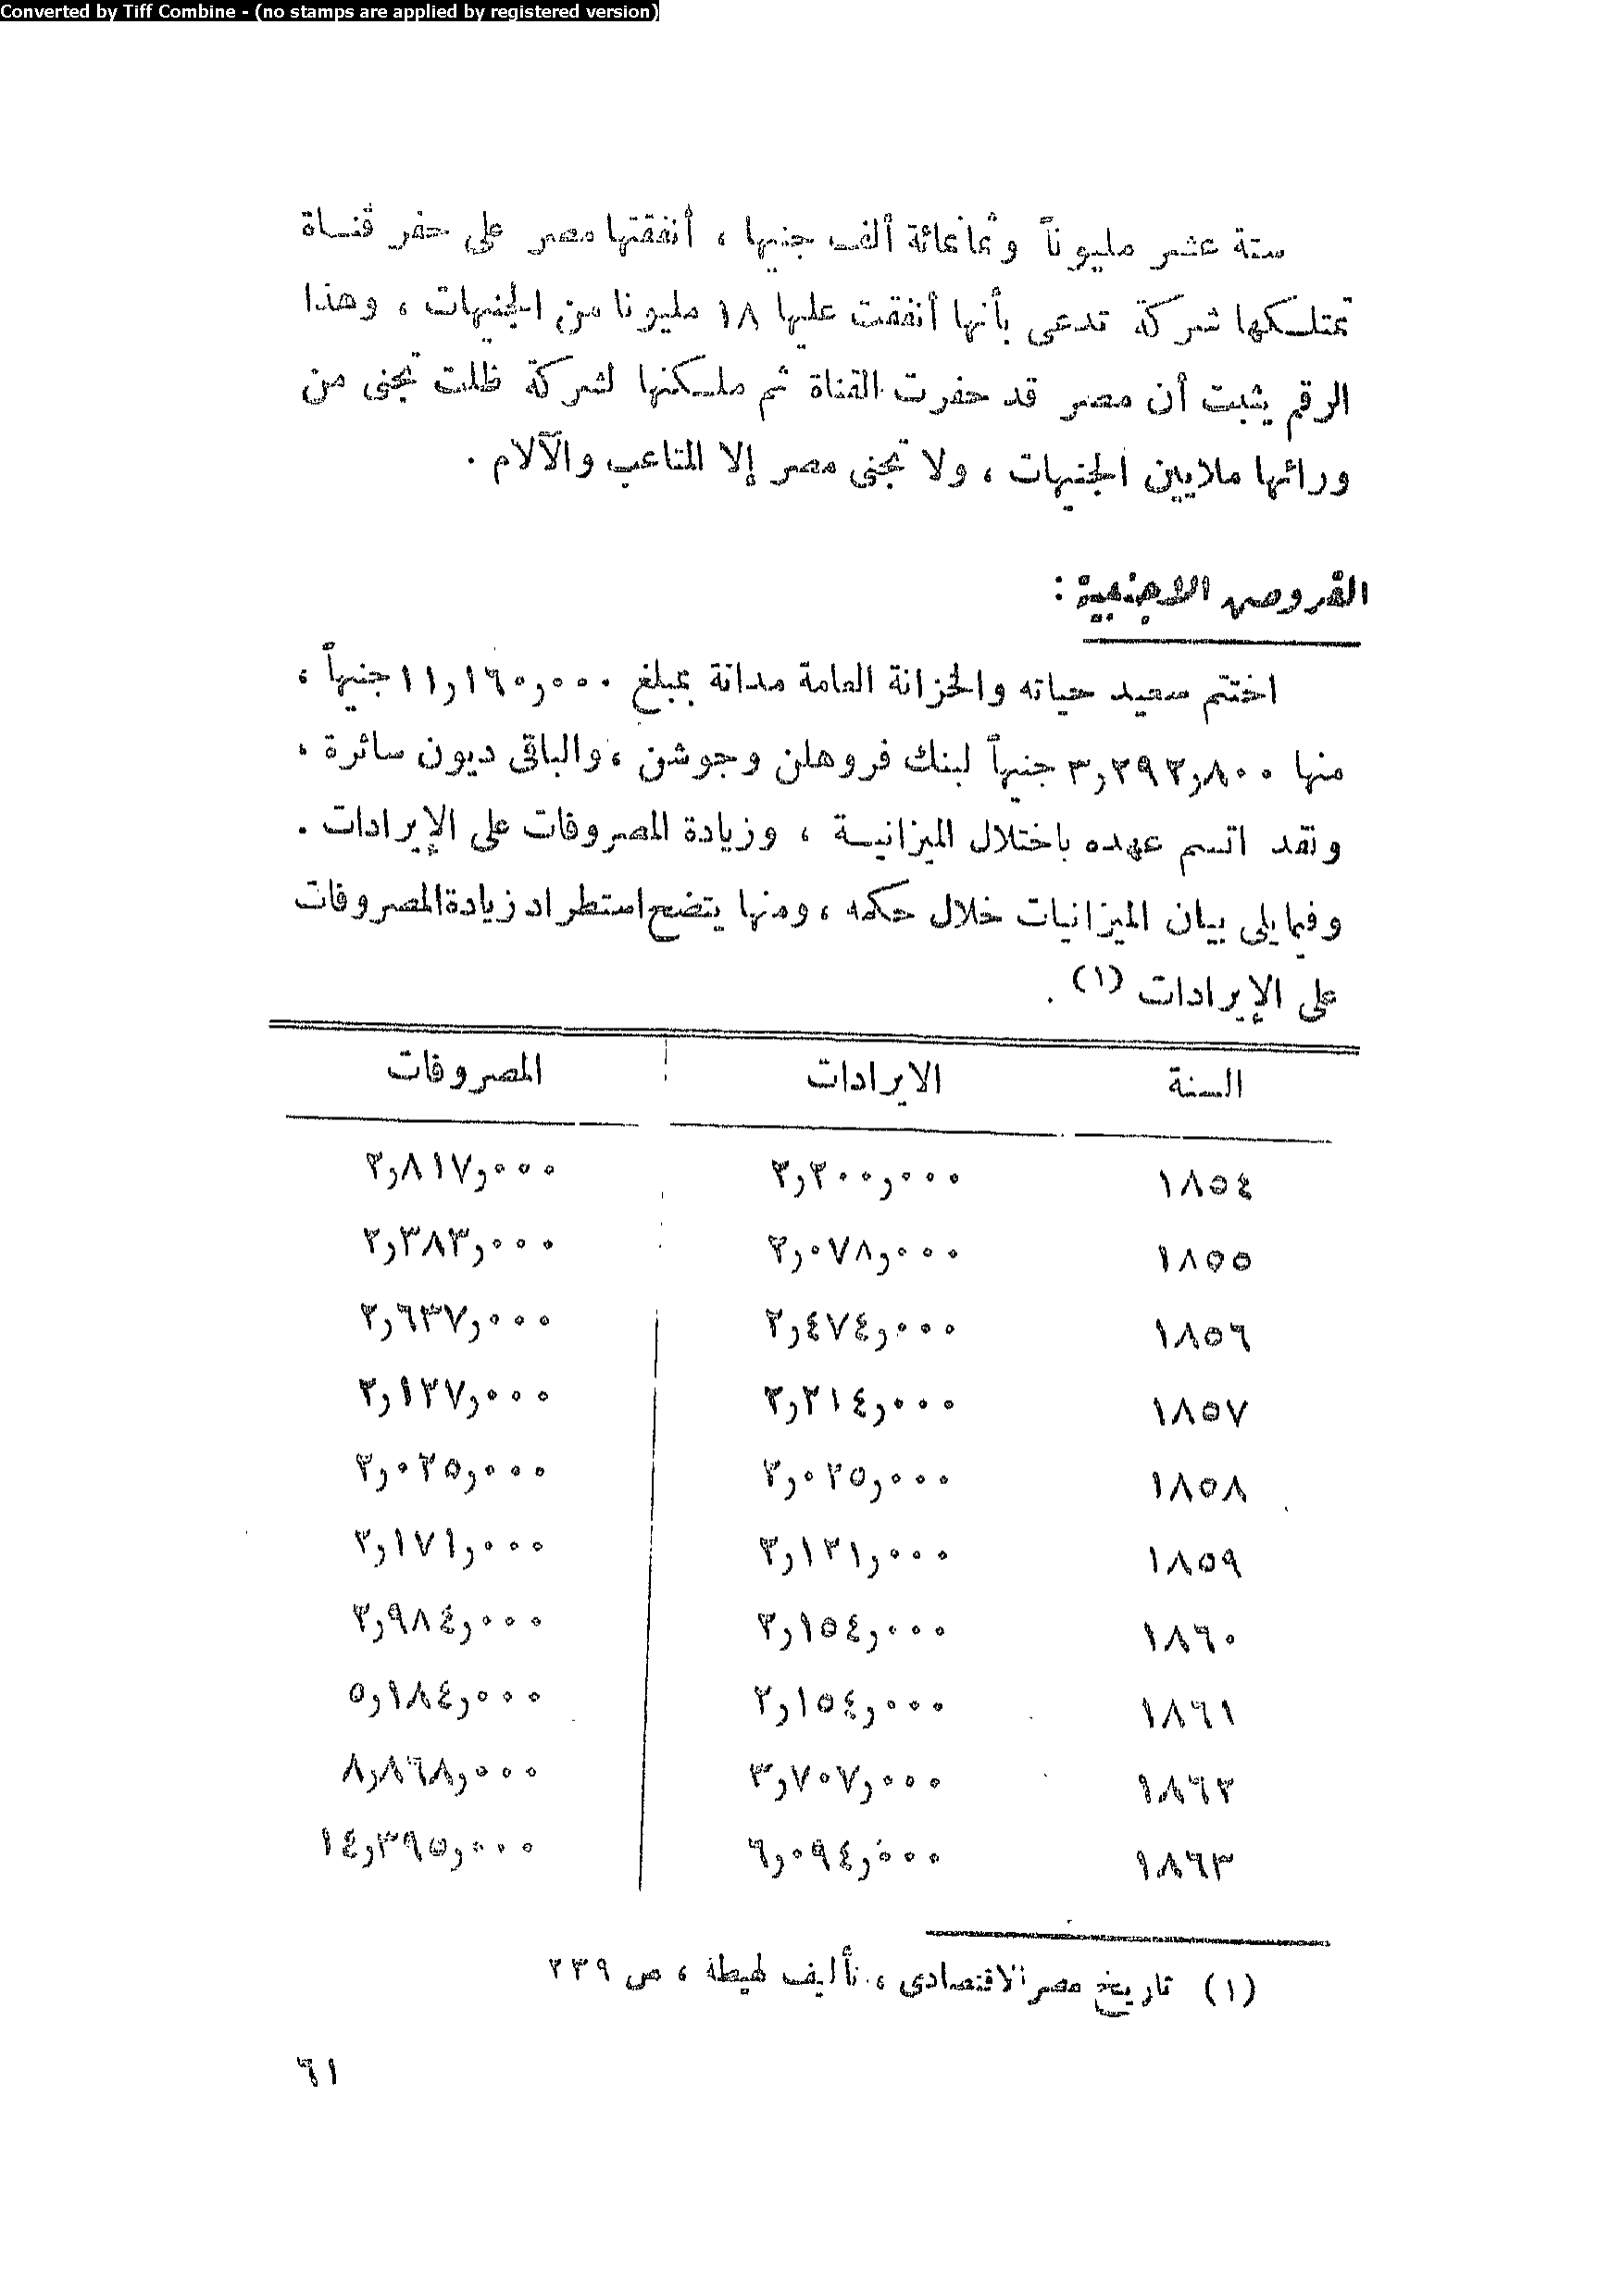 Converted by Tiff Combine - (no stamps are applied by registered version)
ستة عشر مليوناً وثمانمائة ألف جنيها ، أنفقتها مصر على حفر قنـاة
تمتلـكها شركة تدعى بأنها أنفقت عليها ١٨ مليونا من الجنيهات ، وهذا
الرقم يثبت أن مصر قد حفرت القناة ثم ملـكنها لشركة ظلت تجنى من
ورائها ملايين الجنيهات ، ولا تجنى مصر إلا المتاعب والآلام .
القروض الاجنبية :
اختتم سعيد حياته والخزانة العامة مدانة بمبلغ ١١,١٦٠,٠٠٠ جنيهاً ،
منها ٣,٢٩٢,٨٠٠ جنيهاً لبنك فروهلن وجوشن ، والباقى ديون سائرة ،
ولقد اتسم عهده باختلال الميزانيـة ، وزيادة المصروفات على الإيرادات .
وفيما يلى بيان الميزانيات خلال حكمه ، ومنها يتضح استطراد زيادة المصروفات
على الإيرادات (١) .
السنة الايرادات المصروفات
١٨٥٤ ٢,٢٠٠,٠٠٠ ٢,٨١٧,٠٠٠
١٨٥٥ ٢,٠٧٨,٠٠٠ ٢,٣٨٣,٠٠٠
١٨٥٦ ٢,٤٧٤,٠٠٠ ٢,٦٣٧,٠٠٠
١٨٥٧ ٢,٢١٤,٠٠٠ ٢,١٢٧,٠٠٠
١٨٥٨ ٢,٠٢٥,٠٠٠ ٢,٠٢٥,٠٠٠
١٨٥٩ ٢,١٢١,٠٠٠ ٢,١٧١,٠٠٠
١٨٦٠ ٢,١٥٤,٠٠٠ ٢,٩٨٤,٠٠٠
١٨٦١ ٢,١٥٤,٠٠٠ ٥,١٨٤,٠٠٠
١٨٦٢ ٣,٧٠٧,٠٠٠ ٨,٨٦٨,٠٠٠
١٨٦٣ ٦,٠٩٤,٠٠٠ ١٤,٣٩٥,٠٠٠
(١) تاريخ مصر الاقتصادى ، تأليف لهيطة ، ص ٢٣٩
٦١